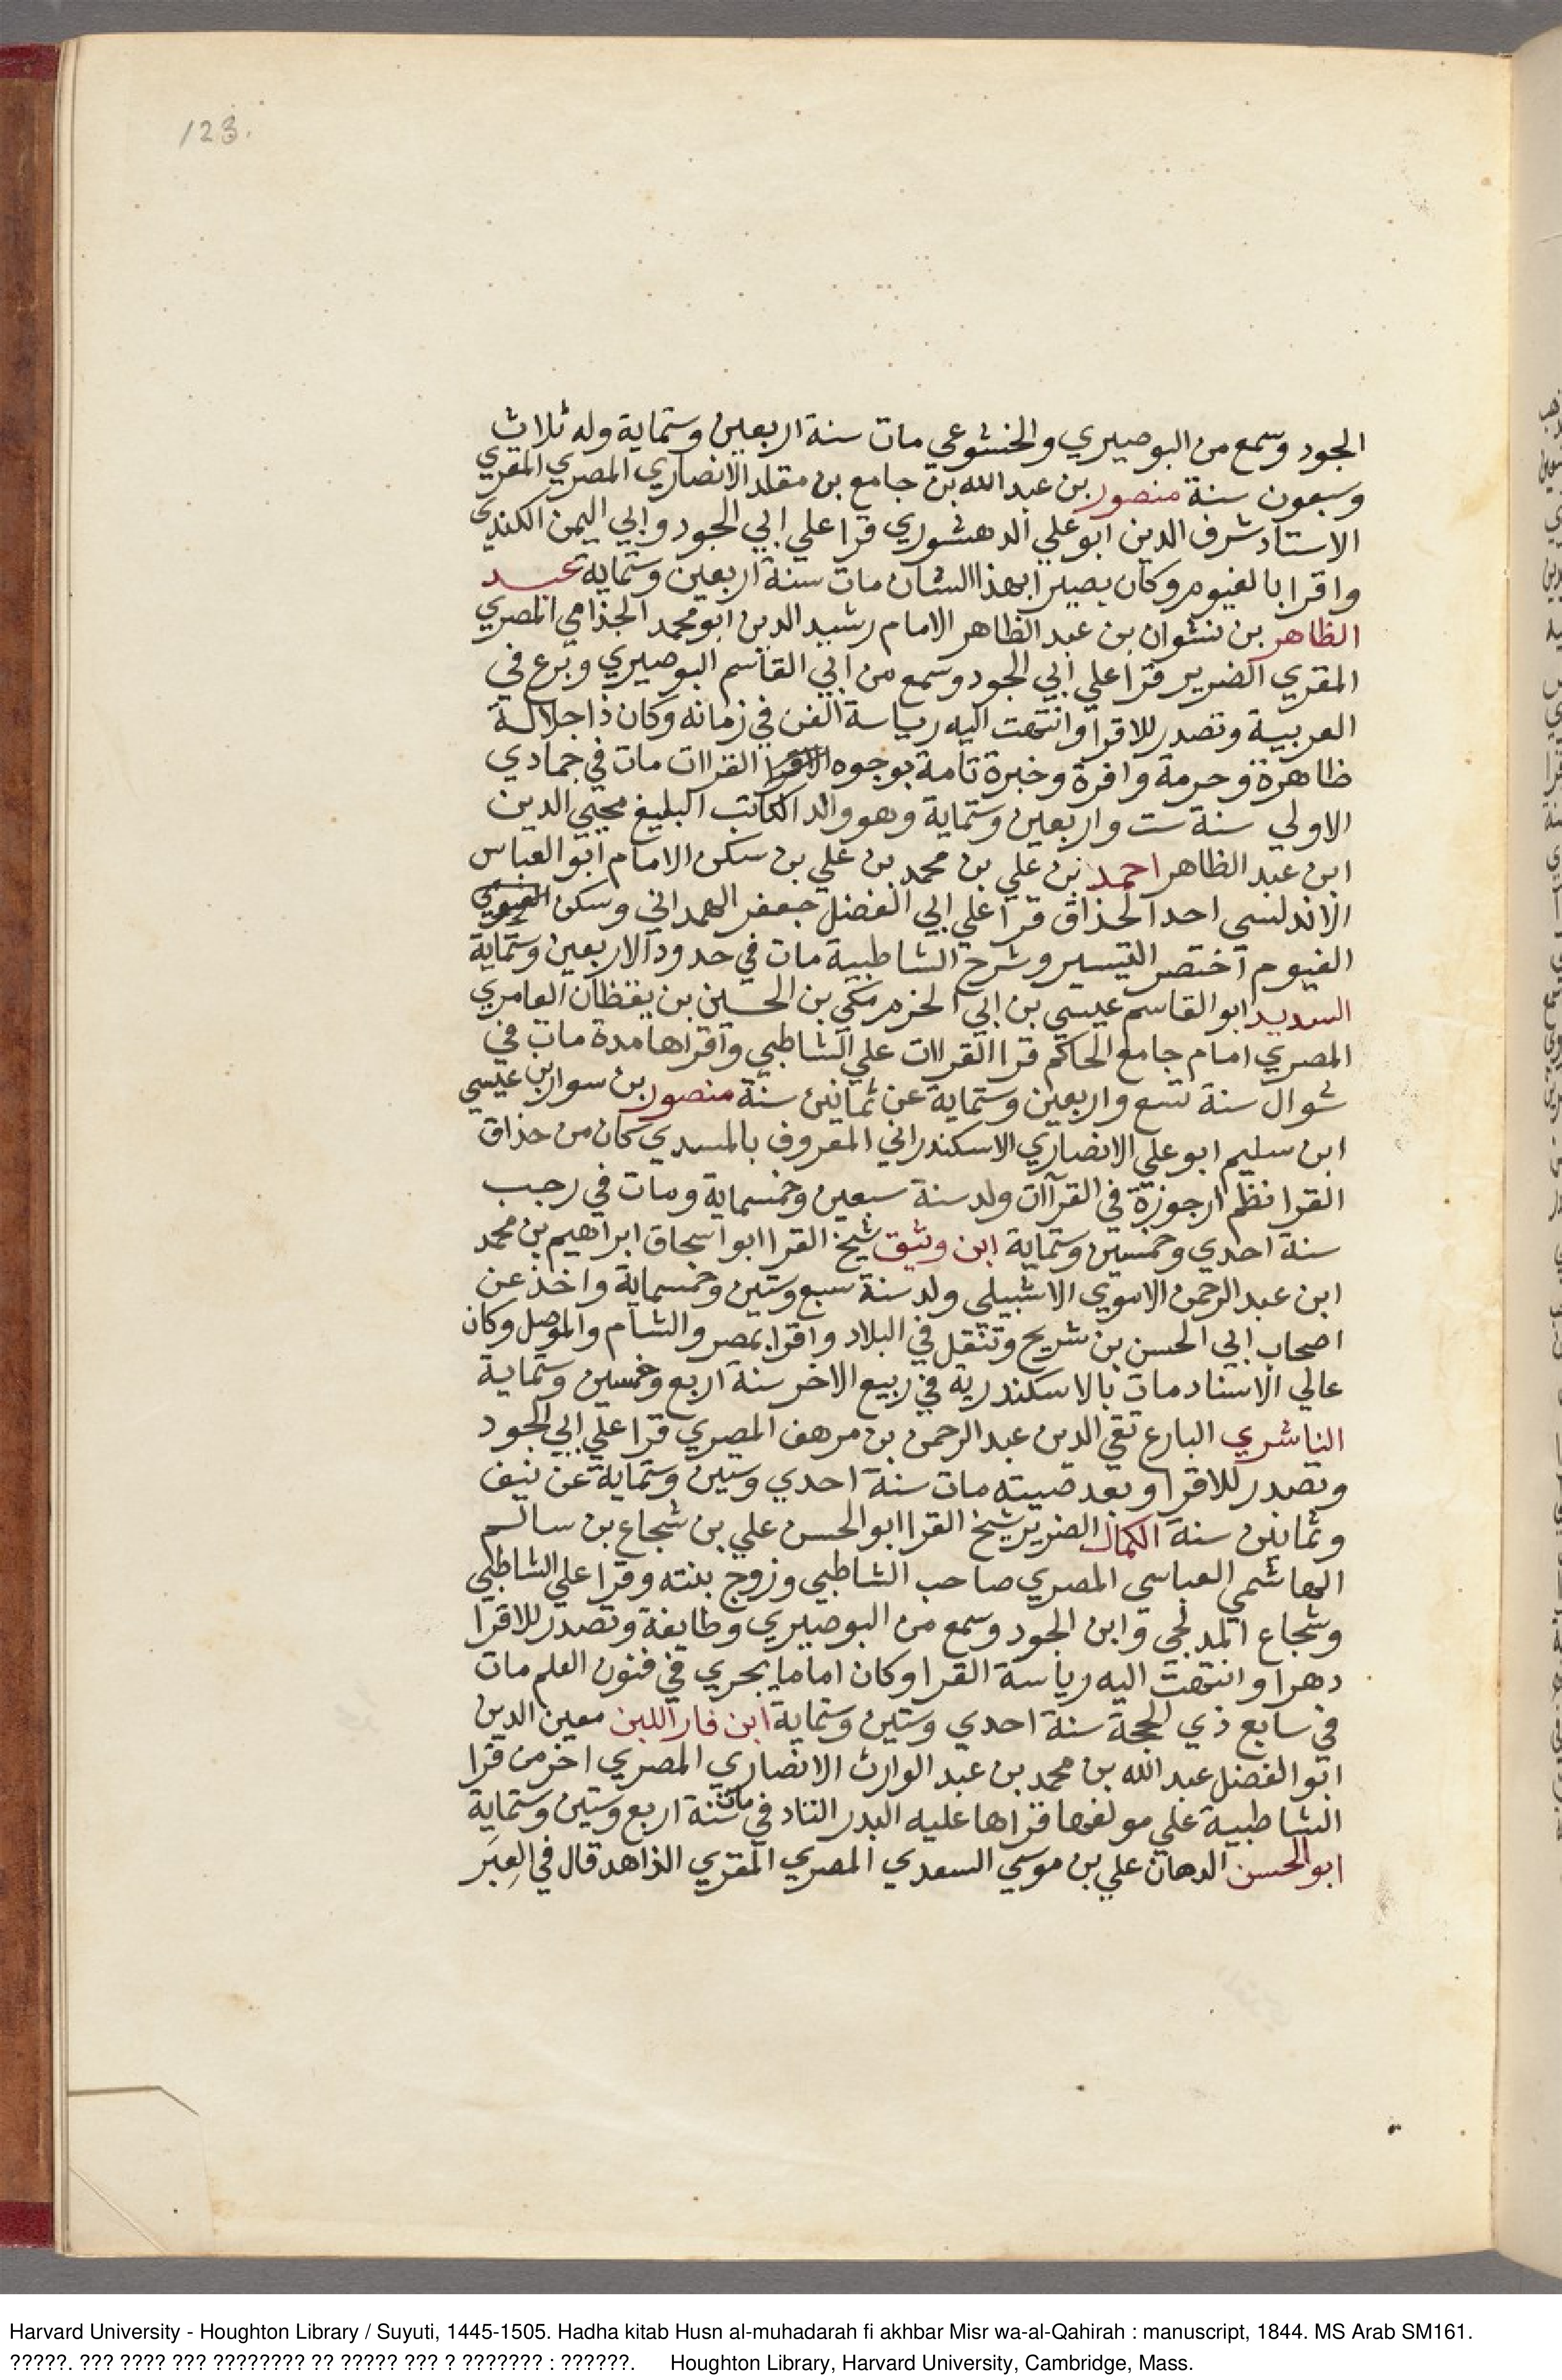 123.
الجود وسمع من البوصيري والخشوعي مات سنة اربعين وستماية وله ثلاث
وسبعون سنة منصور بن عبد الله بن جامع بن مقلد الانصاري المصري المقري
الاستاد شرف الدين ابو علي الدهشوري قرا علي ابي الجود وابي اليمن الكندي
واقرا بالفيوم وكان بصيرا بهذا الشان مات سنة اربعين وستماية عبد
الظاهر بن نشوان بن عبد الظاهر الامام رشيد الدين ابو محمد الجذامي المصري
المقري الضرير قرا علي ابي الجود وسمع من ابي القاسم البوصيري وبرع في
العربية وتصدر للاقرا وانتهت اليه رياسة الفن في زمانه وكان ذا جلالة
ظاهرة وحرمة وافرة وخبرة تامة بوجوه القراات مات في جمادي
الاولي سنة ست واربعين وستماية وهو والد الكاتب البليغ محيي الدين
ابن عبد الظاهر احمد بن علي بن محمد بن علي بن سكن الامام ابو العباس
الاندلسي احد الحذاق قرا علي ابي الفضل جعفر الهمداني وسكن
الفيوم اختصر التيسير وشرح الشاطبية مات في حدود الاربعين وستماية
السديد ابو القاسم عيسي بن ابي الحزم مكي بن الحسين بن يقظان العامري
المصري امام جامع الحاكم قرا القراات علي الشاطبي واقراها مدة مات في
شوال سنة تسع واربعين وستماية عن ثمانين سنة منصور بن سوار بن عيسي
ابن سليم ابو علي الانصاري الاسكندراني المعروف بالمسدي كان من حذاق
القرا نظم ارجوزة في القرآات ولد سنة سبعين وخمسماية ومات في رجب
سنة احدي وخمسين وستماية ابن وثيق شيخ القرا ابو اسحاق ابراهيم بن محمد
ابن عبد الرحمن الاموي الاشبيلي ولد سنة سبع وستين وخمسماية واخذ عن
اصحاب ابي الحسن بن شريح وتنقل في البلاد واقرا بمصر والشام والموصل وكان
عالي الاسناد مات بالاسكندرية في ربيع الاخر سنة اربع وخمسين وستماية
الناشري البارع تقي الدين عبد الرحمن بن مرهف المصري قرا علي ابي الجود
وتصدر للاقرا وبعد صيته مات سنة احدي وستين وستماية عن نيف
وثمانين سنة الكمال الضرير شيخ القرا ابو الحسن علي بن شجاع بن سالم
الهاشمي العباسي المصري صاحب الشاطبي وزوج بنته وقرا علي الشاطبي
وشجاع المدلجي وابن الجود وسمع من البوصيري وطايفة وتصدر للاقرا
دهرا وانتهت اليه رياسة القرا وكان اماما يجري في فنون العلم مات
في سابع ذي الحجة سنة احدي وستين وستماية ابن فار اللبن معين الدين
ابو الفضل عبد الله بن محمد بن عبد الوارث الانصاري المصري اخر من قرا
الشاطبية علي مولفها قراها عليه البدر التاد في مات سنة اربع وستين وستماية
ابو الحسن الدهان علي بن موسي السعدي المصري المقري الذاهد قال في العِبَر
Harvard University - Houghton Library / Suyuti, 1445-1505. Hadha kitab Husn al-muhadarah fi akhbar Misr wa-al-Qahirah : manuscript, 1844. MS Arab SM161.
?????. ??? ???? ??? ???????? ?? ????? ??? ? ??????? : ??????. Houghton Library, Harvard University, Cambridge, Mass.